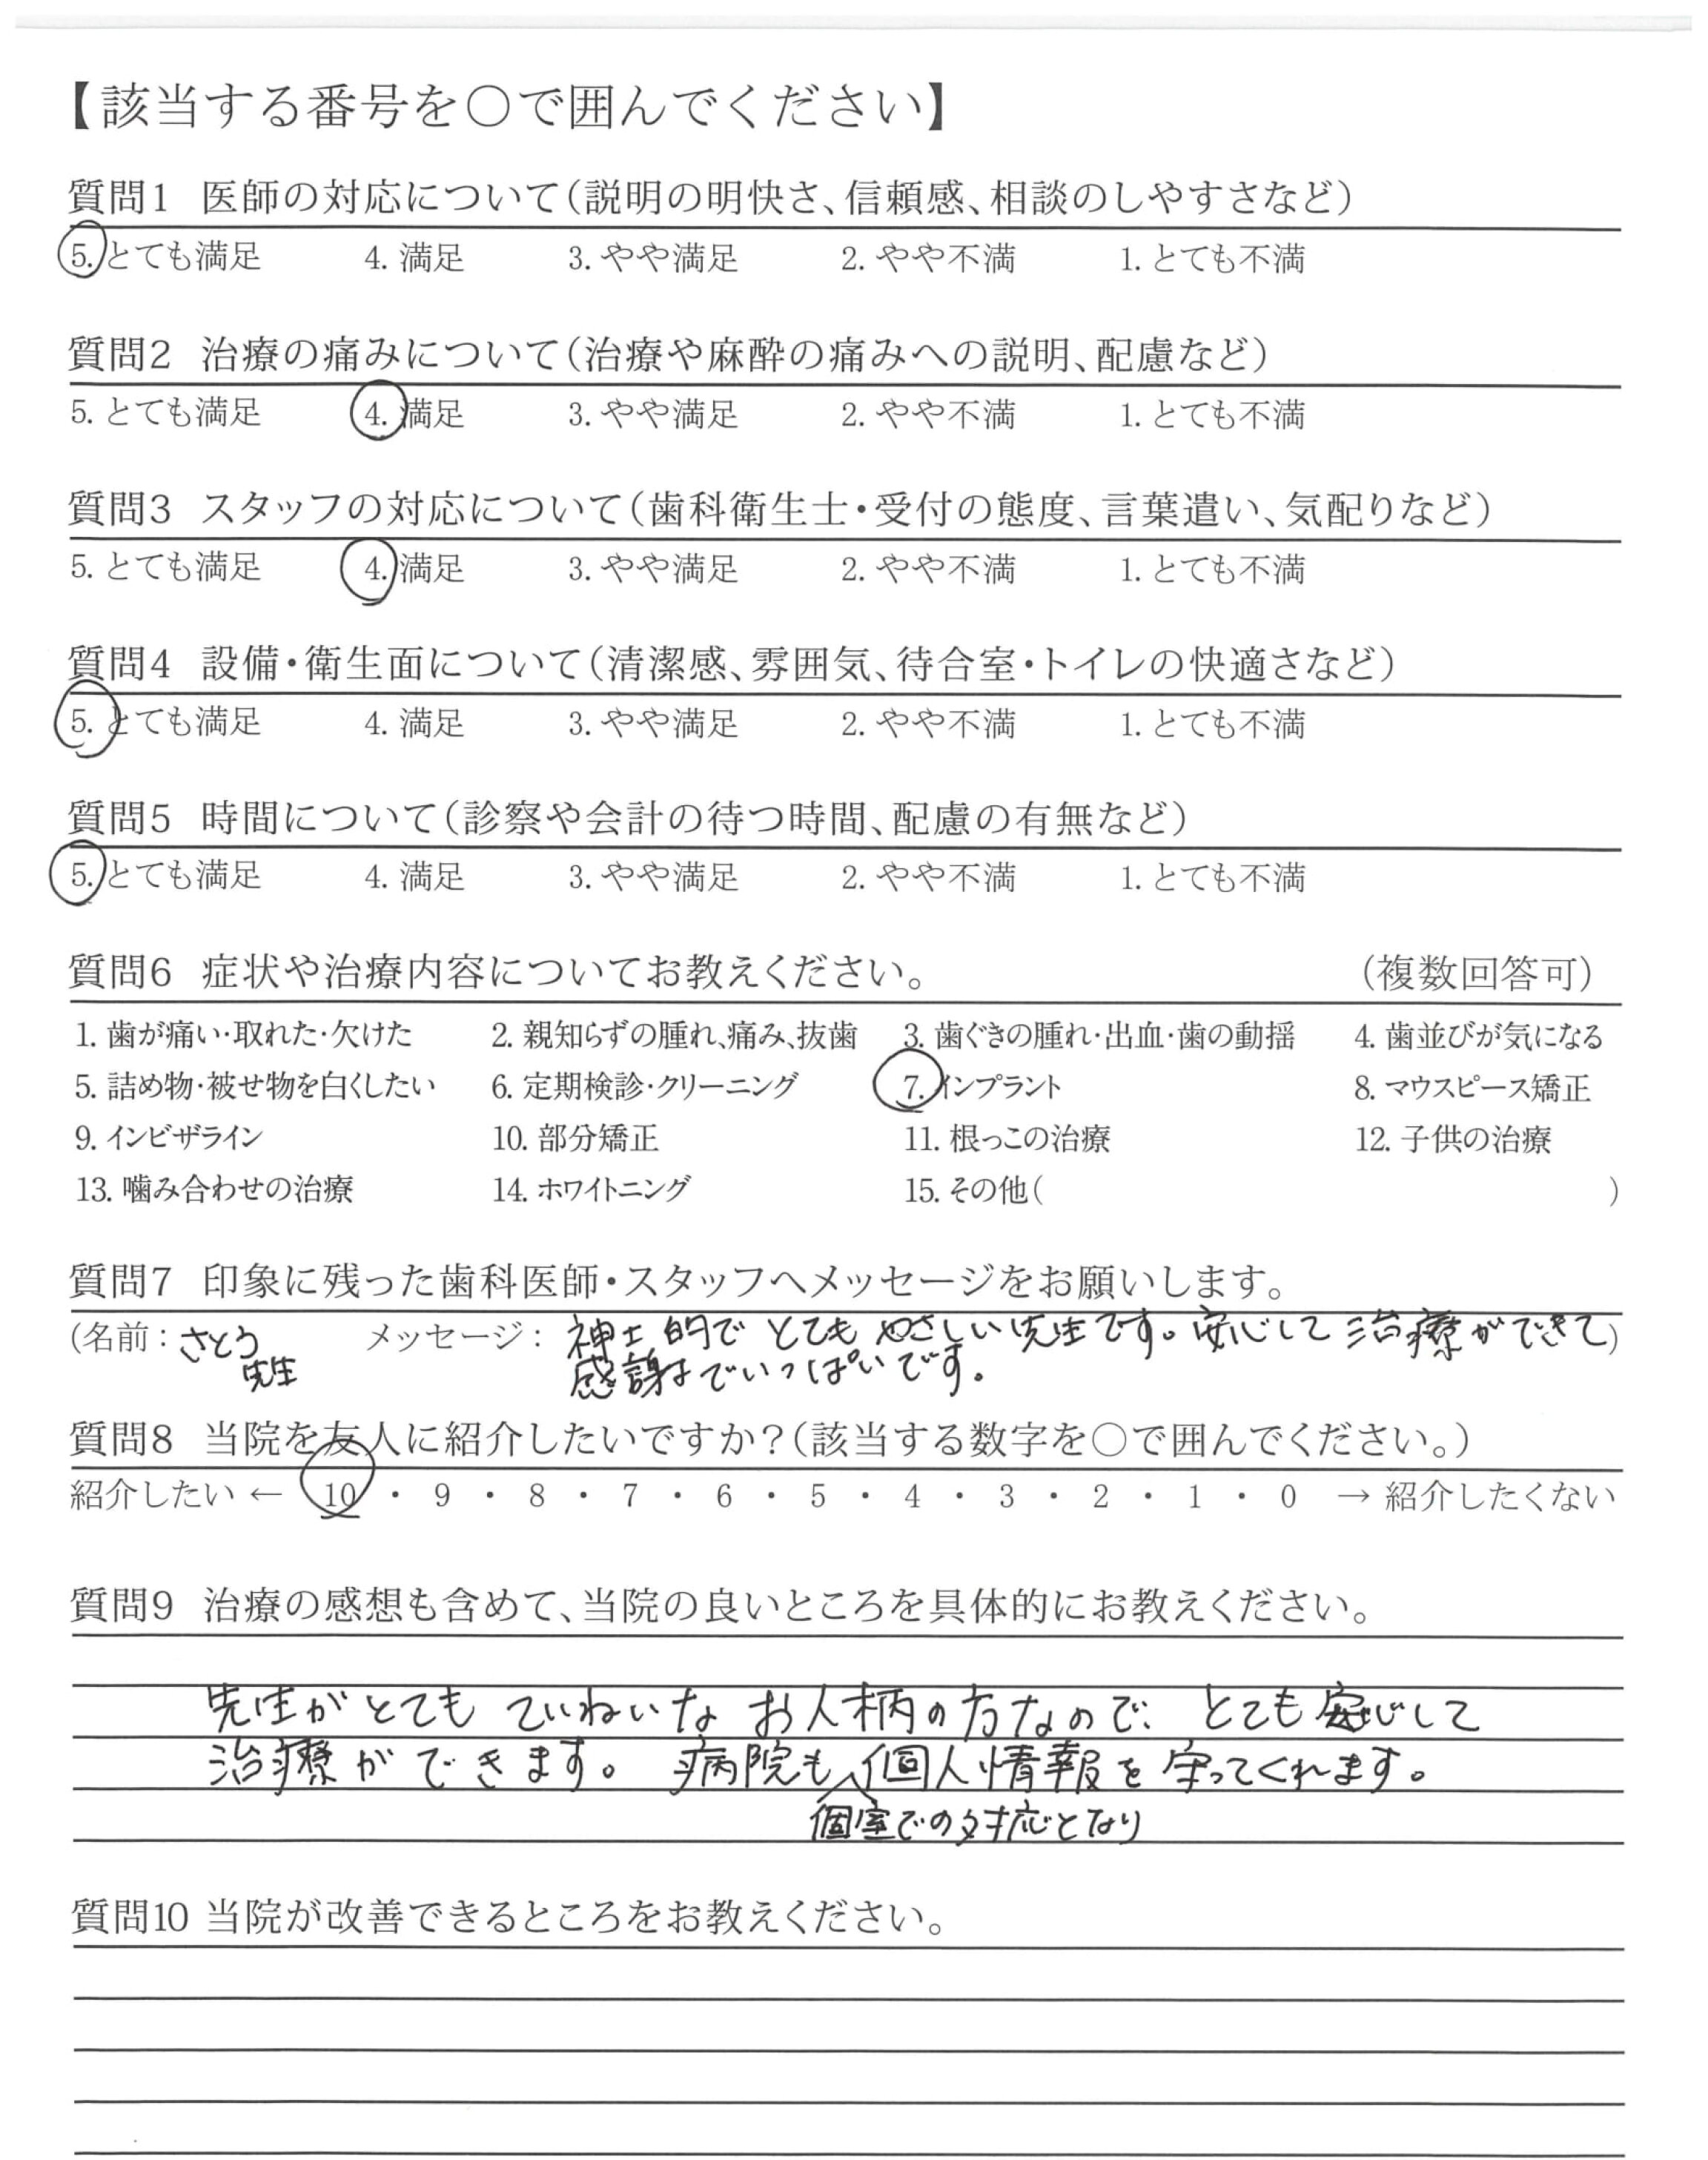 【該当する番号を○で囲んでください】
質問1 医師の対応について(説明の明快さ、信頼感、相談のしやすさなど)
5. とても満足 4. 満足 3. やや満足 2. やや不満 1. とても不満
質問2 治療の痛みについて(治療や麻酔の痛みへの説明、配慮など)
5. とても満足 4. 満足 3. やや満足 2. やや不満 1. とても不満
質問3 スタッフの対応について(歯科衛生士・受付の態度、言葉遣い、気配りなど)
5. とても満足 4. 満足 3. やや満足 2. やや不満 1. とても不満
質問4 設備・衛生面について(清潔感、雰囲気、待合室・トイレの快適さなど)
5. とても満足 4. 満足 3. やや満足 2. やや不満 1. とても不満
質問5 時間について(診察や会計の待つ時間、配慮の有無など)
5. とても満足 4. 満足 3. やや満足 2. やや不満 1. とても不満
質問6 症状や治療内容についてお教えください。 (複数回答可)
1. 歯が痛い・取れた・欠けた 2. 親知らずの腫れ、痛み、抜歯 3. 歯ぐきの腫れ・出血・歯の動揺 4. 歯並びが気になる
5. 詰め物・被せ物を白くしたい 6. 定期検診・クリーニング 7. インプラント 8. マウスピース矯正
9. インビザライン 10. 部分矯正 11. 根っこの治療 12. 子供の治療
13. 噛み合わせの治療 14. ホワイトニング 15. その他( )
質問7 印象に残った歯科医師・スタッフへメッセージをお願いします。
(名前: さとう メッセージ: 神士的で とても やさしい先生です。安心して 治療ができて)
先生 感謝までいっぱいです。
質問8 当院を友人に紹介したいですか?(該当する数字を○で囲んでください。)
紹介したい ← 10 ・ 9 ・ 8 ・ 7 ・ 6 ・ 5 ・ 4 ・ 3 ・ 2 ・ 1 ・ 0 → 紹介したくない
質問9 治療の感想も含めて、当院の良いところを具体的にお教えください。
先生がとても ていねいな お人柄の方なので、とても安心して
治療ができます。病院も 個人情報を守ってくれます。
個室での対応となり
質問10 当院が改善できるところをお教えください。